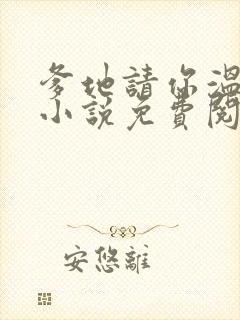 爹地請你溫
小說免費閱
安悠離